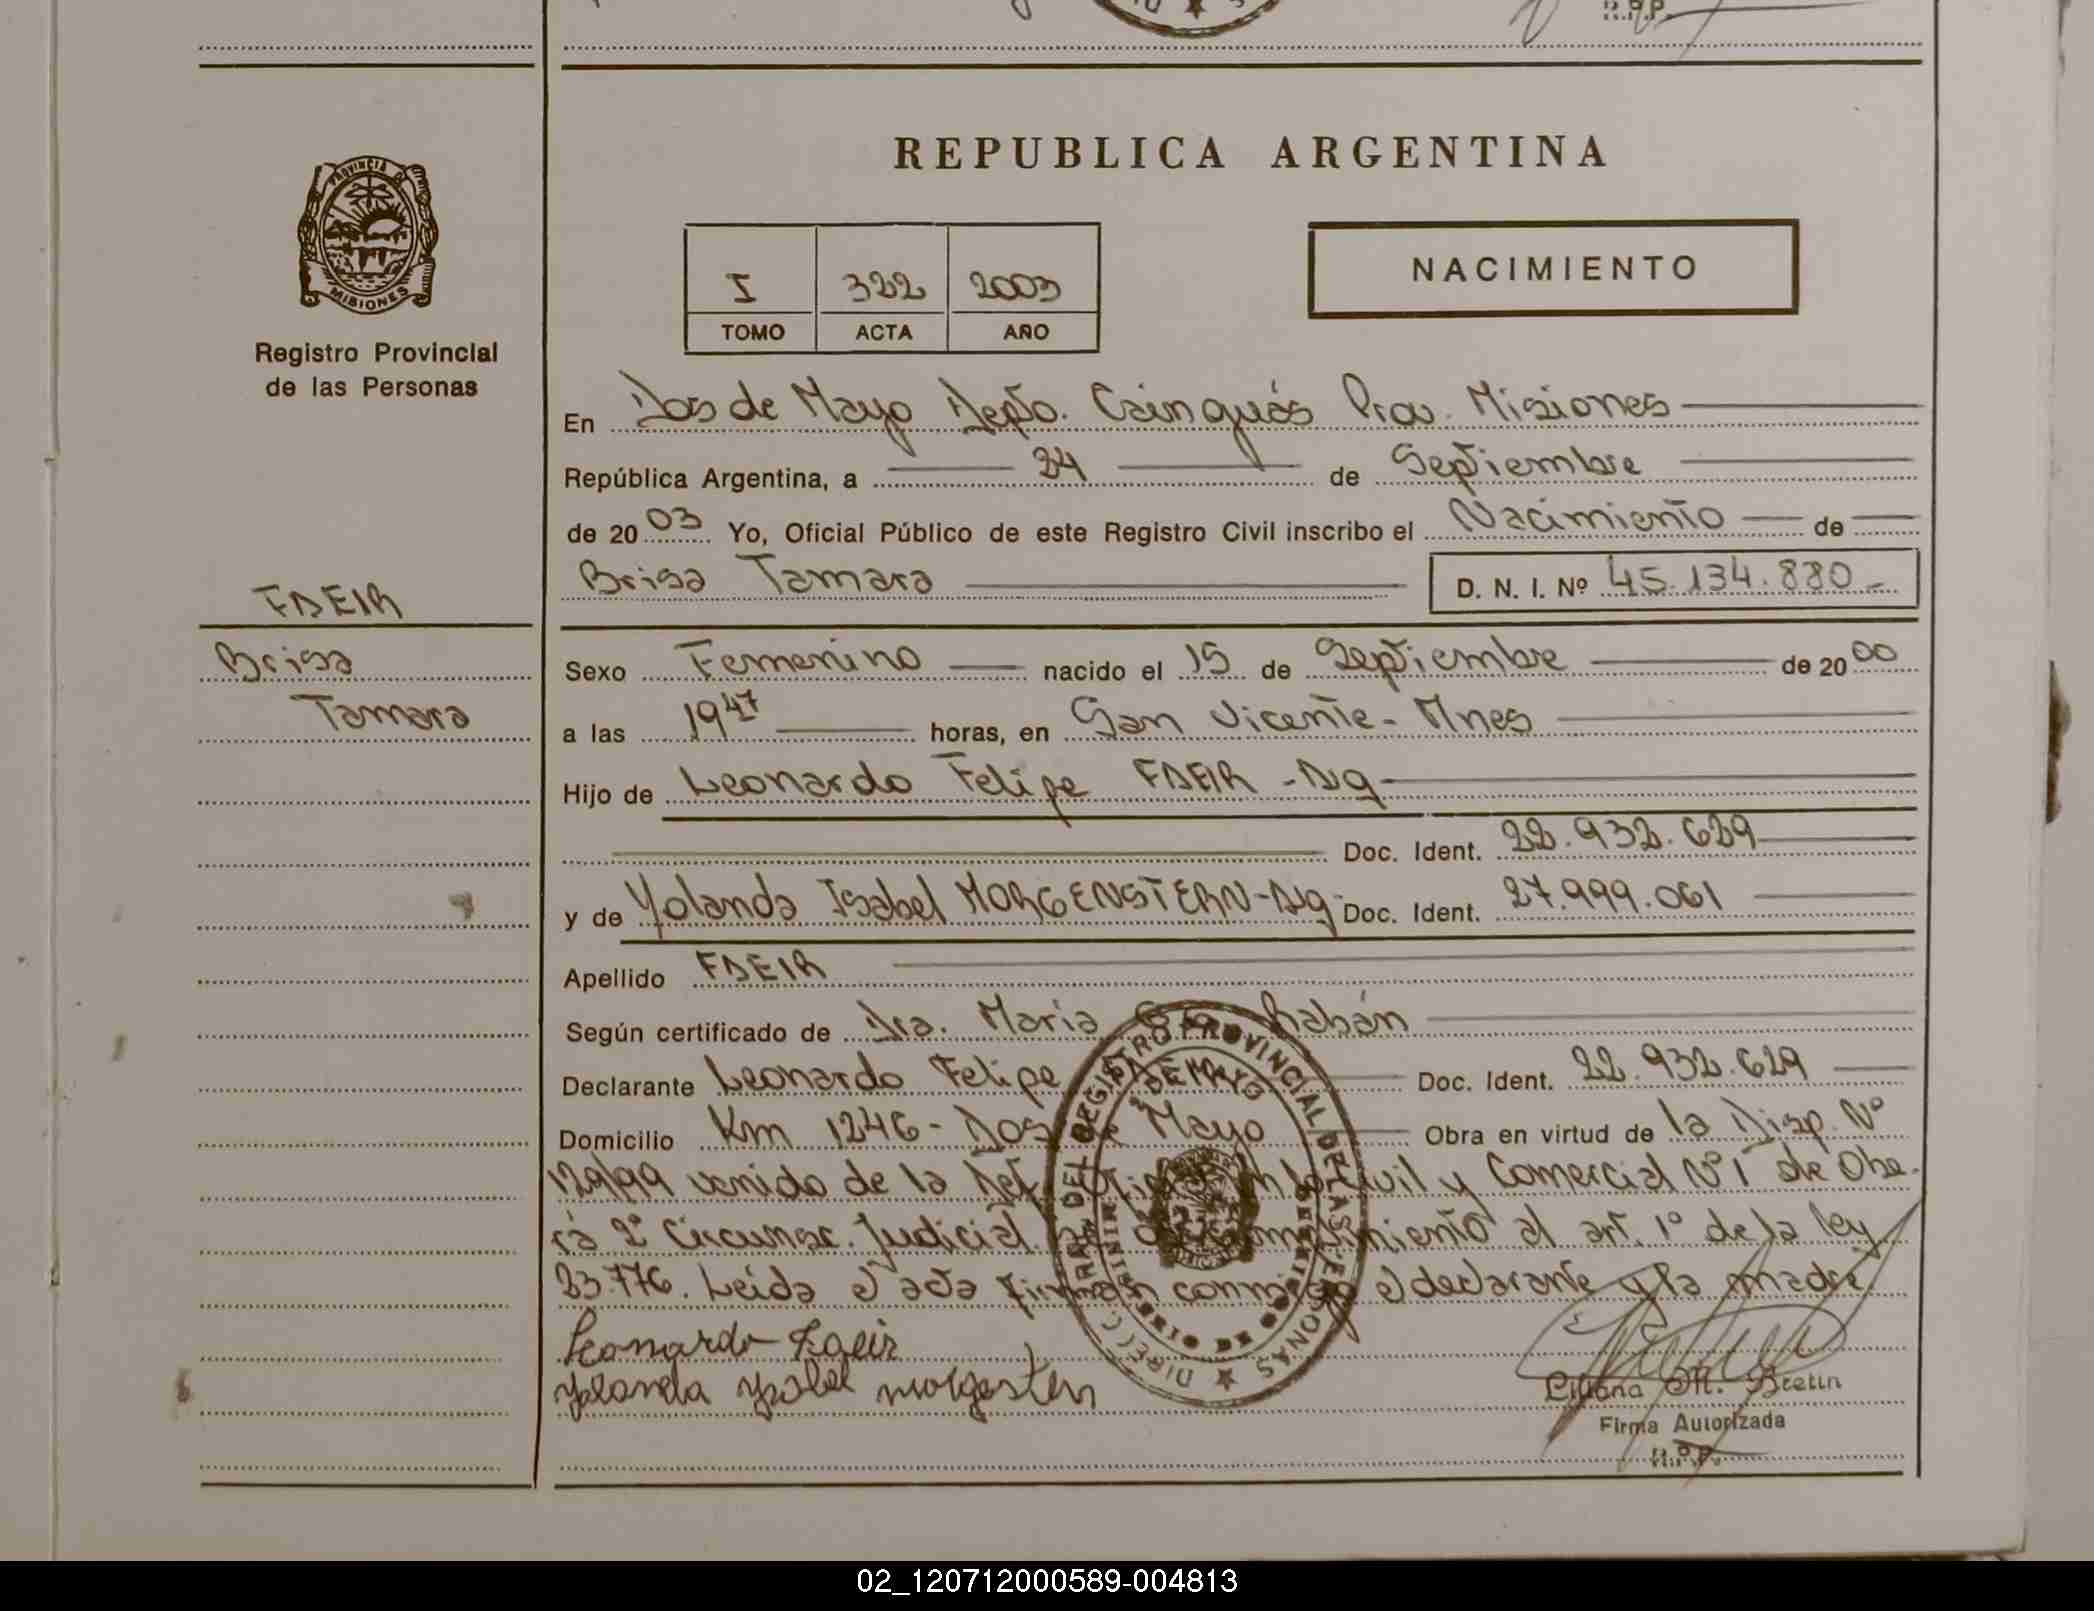 PROVINCIA DE
MISIONES
Registro Provincial
de las Personas
FDEIR
Brisa
Tamara
REPUBLICA ARGENTINA
I 322 2003
TOMO ACTA AÑO
NACIMIENTO
En Dos de Mayo Depto. Cainguás Prov. Misiones
República Argentina, a 24 de Septiembre
de 2003 Yo, Oficial Público de este Registro Civil inscribo el Nacimiento de
Brisa Tamara D. N. I. Nº 45.134.880
Sexo Femenino nacido el 15 de Septiembre de 2000
a las 19 47 horas, en San Vicente - Mnes
Hijo de Leonardo Felipe FDEIR - Ag
Doc. Ident. 22.932.629
y de Yolanda Isabel MORGENSTERN - Ag Doc. Ident. 27.999.061
Apellido FDEIR
Según certificado de Dra. Maria Rabán
Declarante Leonardo Felipe Doc. Ident. 22.932.629
Domicilio Km 1246 - Dos de Mayo Obra en virtud de la Disp. Nº
129/99 venido de la Def. Civil y Comercial Nº 1 de Obe-
rá 2º Circunsc. Judicial al art. 1º de la ley
23.776. Leída el acta firman conmigo el declarante y la madre.
Leonardo Fdeir
Yolanda Ysabel morgestern
Liliana M. Bretin
Firma Autorizada
R.P.P.
DIRECC. GRAL. DEL REGISTRO PROVINCIAL DE LAS PERSONAS
2 DE MAYO
02_120712000589-004813